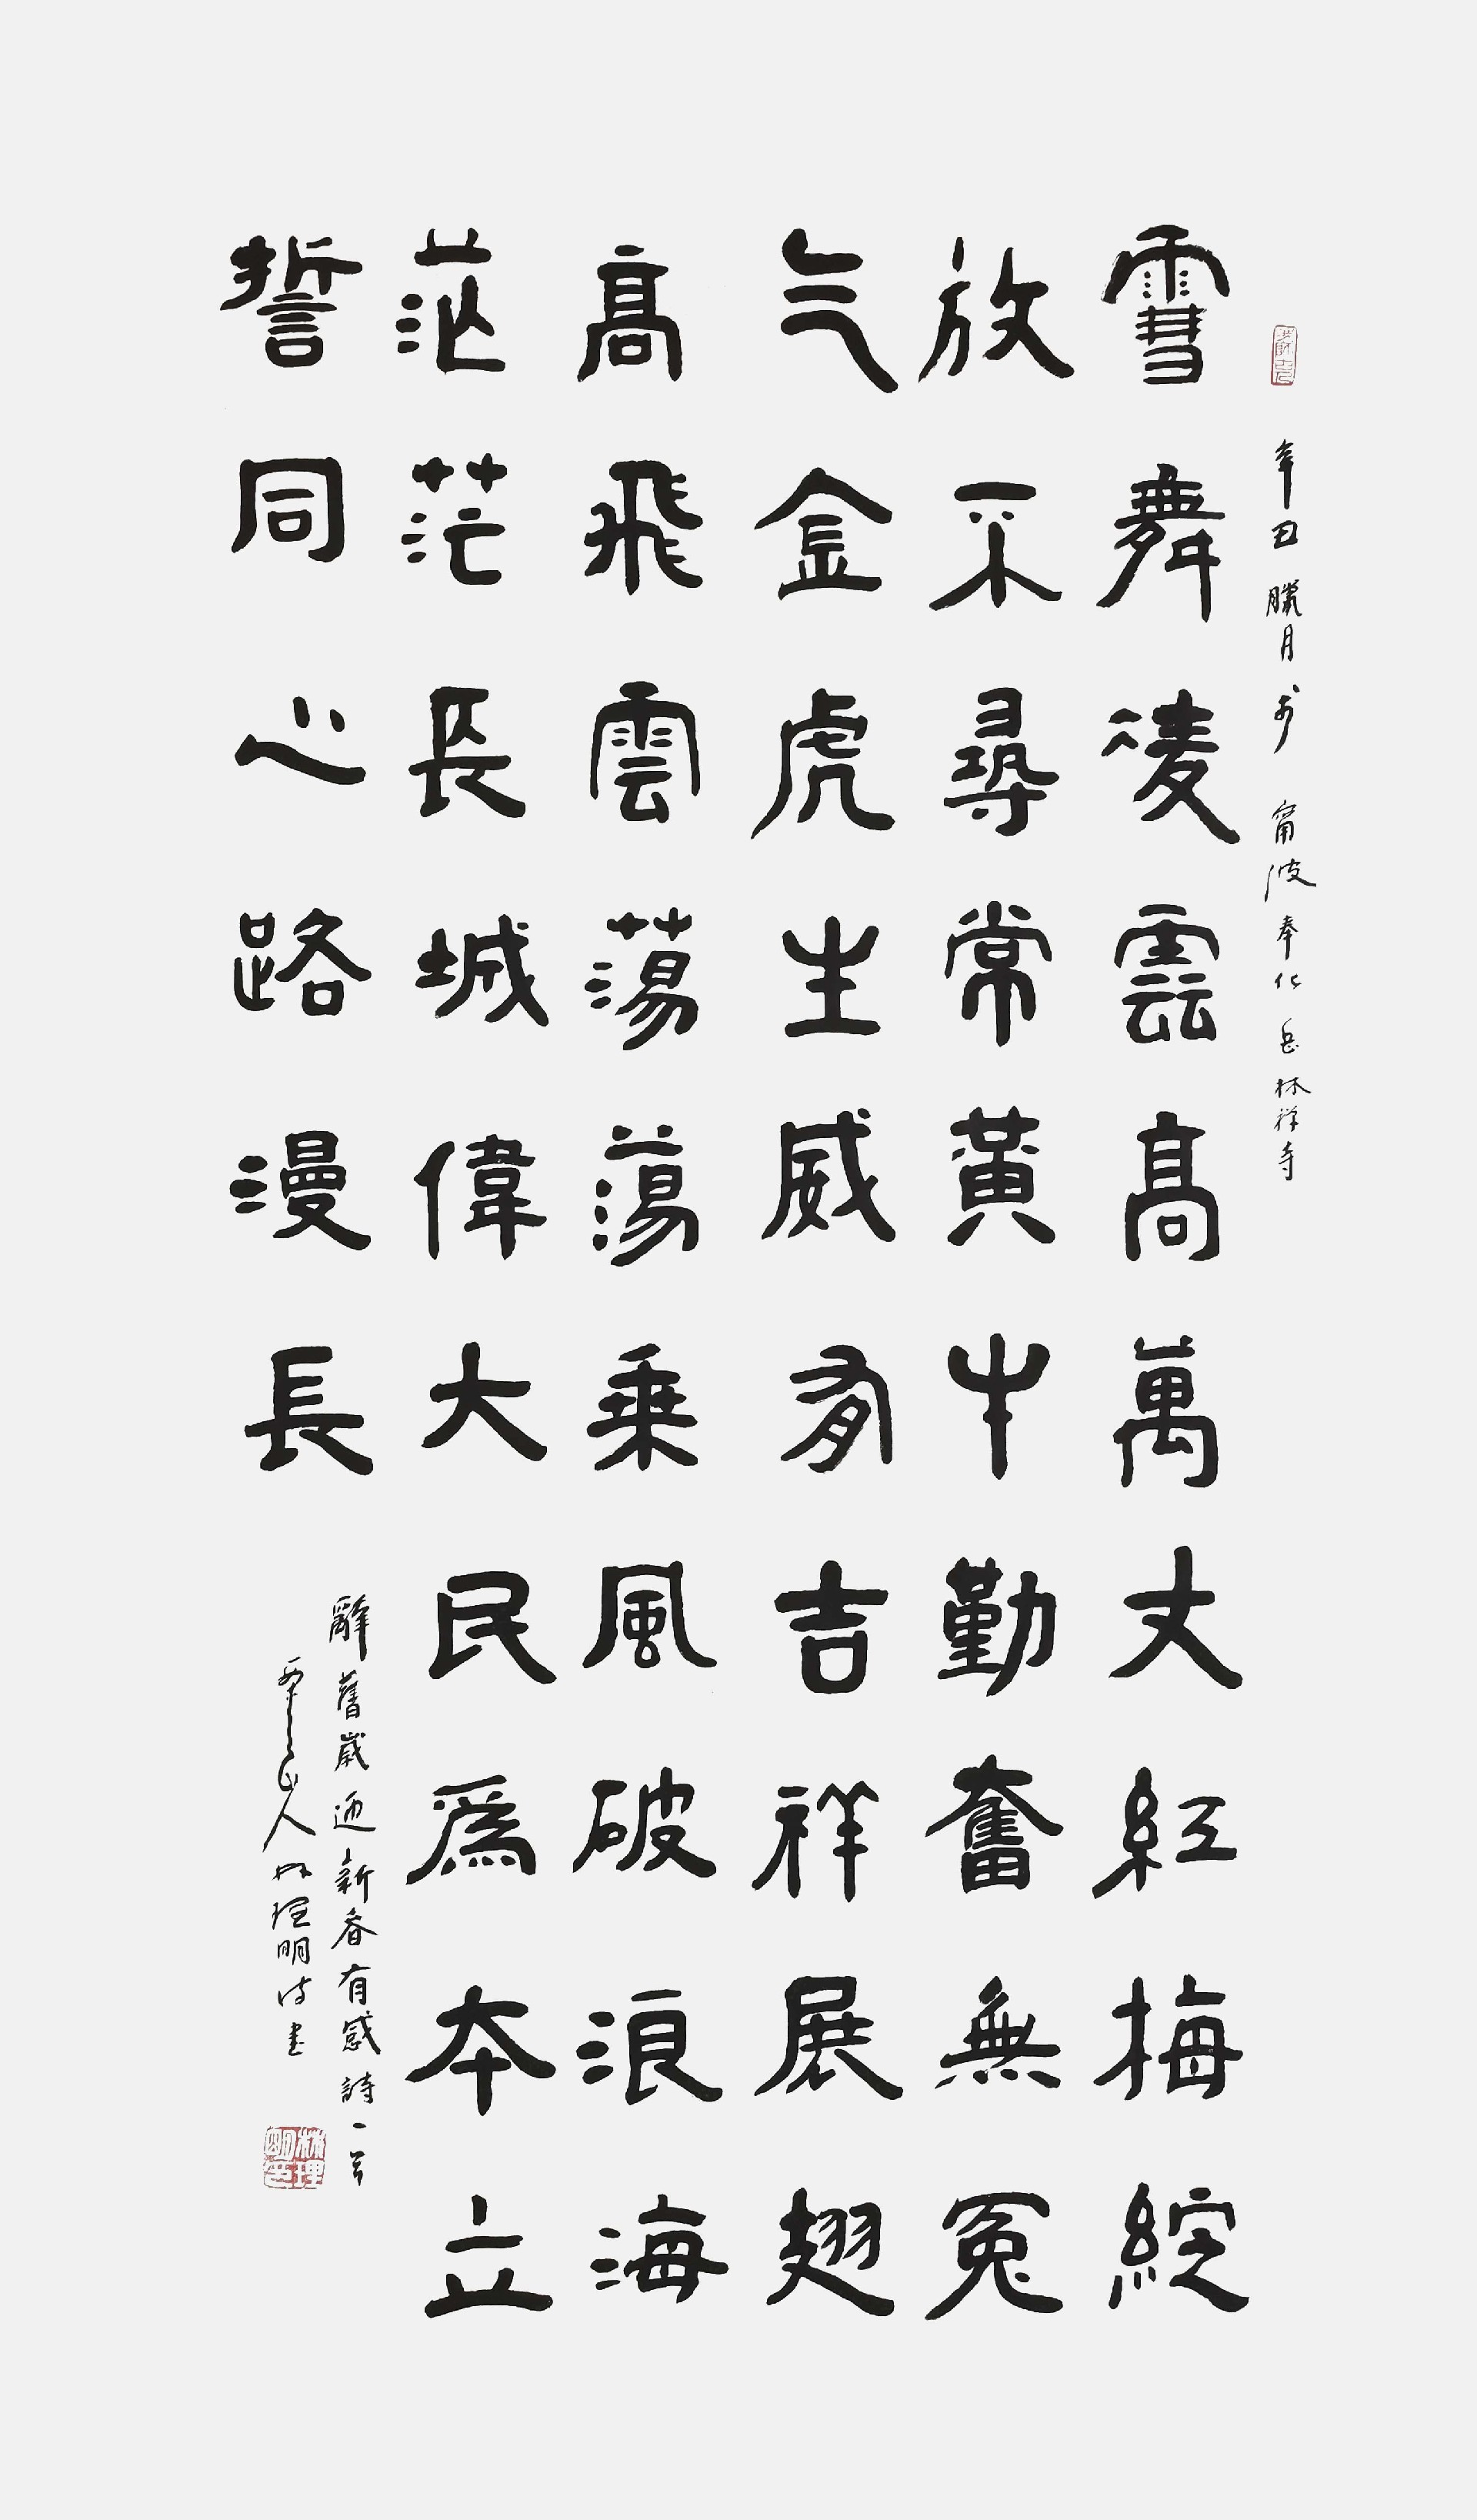 辛丑臘月於甯波奉化岳林禪寺
雪舞凌雲高萬丈紅梅綻
放不尋常黃牛勤奮無冤
气金虎生威有吉祥展翅
高飛雲蕩蕩乘風破浪海
茫茫長城偉大民爲本立
誓同心路漫長
辭舊歲迎新春有感詩一首
山人林理明詩書
林理明印